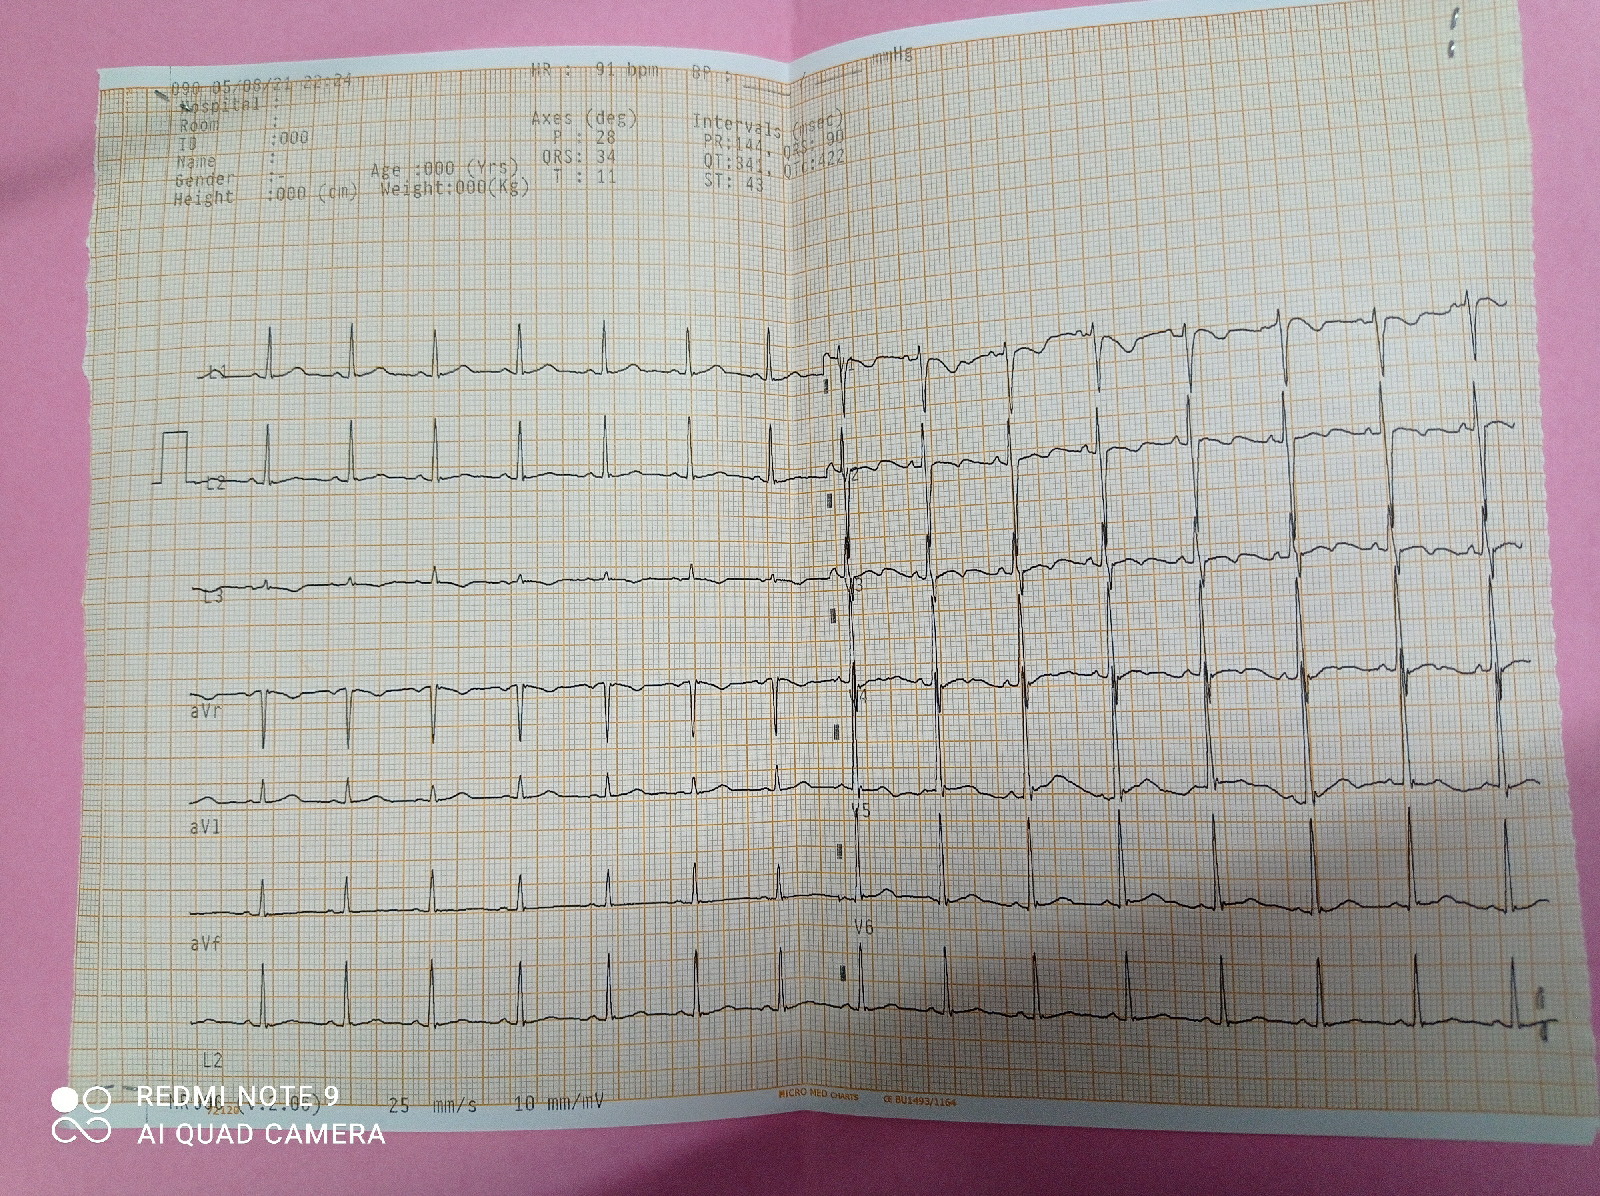 090 05/08/21 22:24
HR : 91 bpm BP : _____ / _____ mmHg
Hospital :
Room :
ID :000
Name :
Gender :-
Age :000 (Yrs)
Height :000 (cm) Weight:000(Kg)
Axes (deg)
P : 28
QRS: 34
T : 11
Intervals (msec)
PR:144, QRS: 90
QT:341, QTC:422
ST: 43
L1
L2
L3
aVr
aVl
aVf
L2
2
3
V5
V6
25 mm/s 10 mm/mV
MICRO MED CHARTS CE BU1493/1164
REDMI NOTE 9
AI QUAD CAMERA